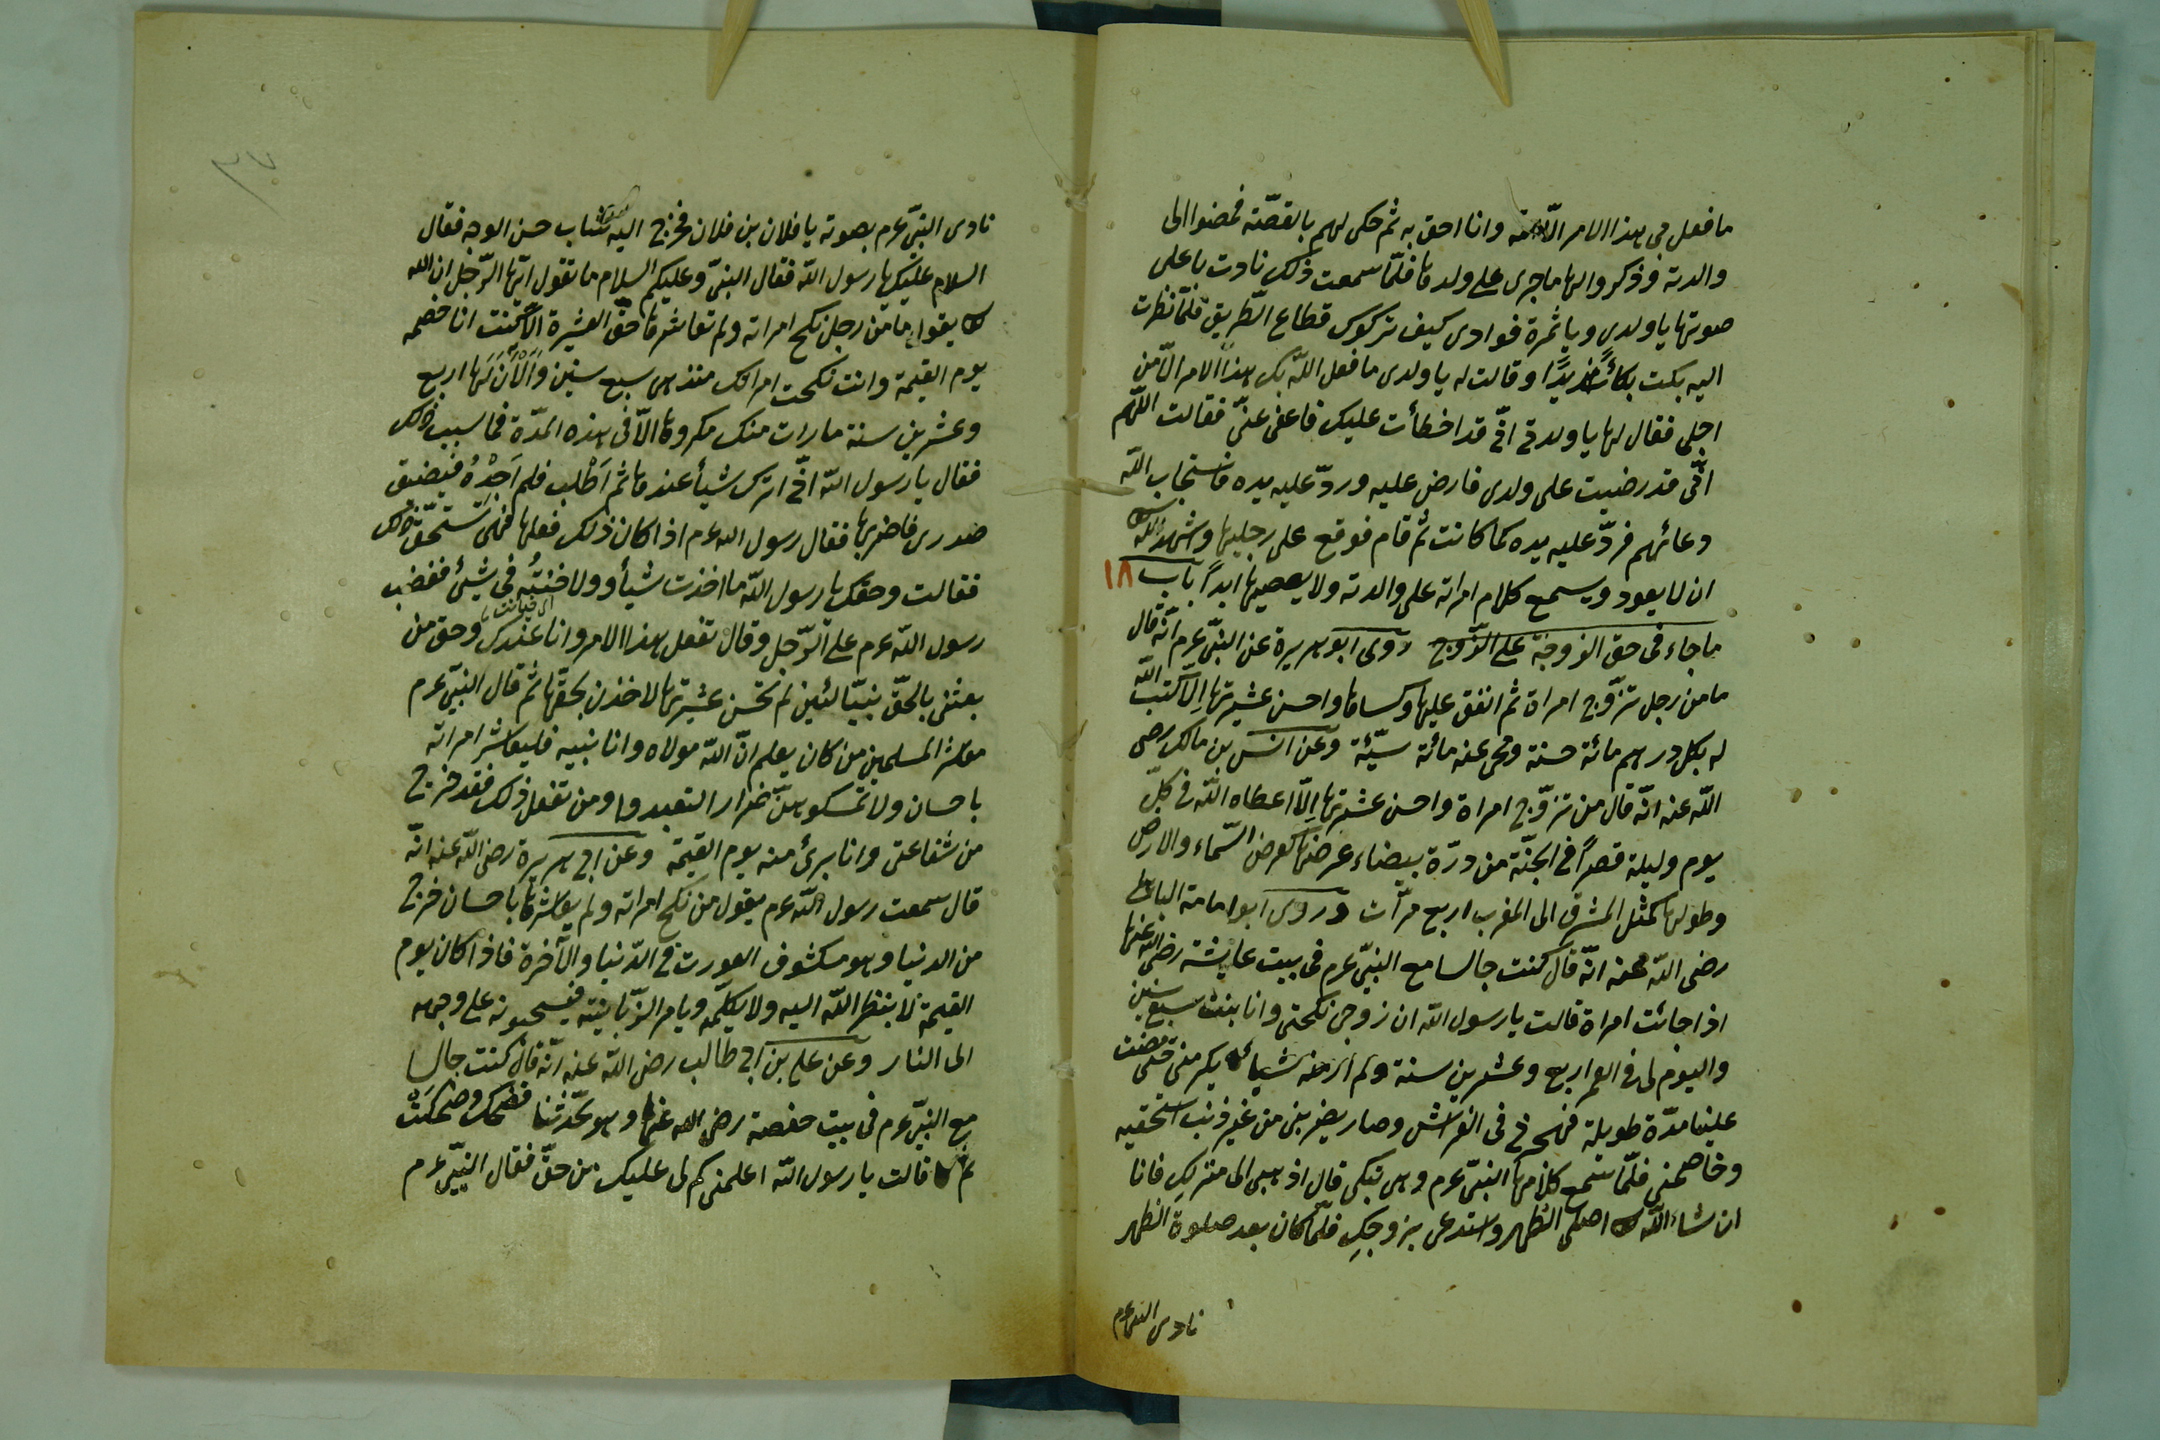 ما فعل بى هذا الامر الا الله وانا احق به ثم حكى لهم بالقصّة فمضوا الى
والدته وذكروا لها ما جرى على ولدها فلمّا سمعت ذلك نادت باعلى
صوتها يا ولدى ويا ثمرة فوادى كيف تركوك قطاع الطّريق فلمّا نظرت
اليه بكت بكاءً شديدًا وقالت له يا ولدى ما فعل اللّه بك هذا الامر الّا من
اجلى فقال لها يا ولدتى انّى قد اخطأت عليك فاعفى عنّى فقالت اللّهم
انّى قد رضيت على ولدى فارض عليه وردّ عليه يده فاستجاب اللّه
دعائهم فردّ عليه يده كما كانت ثم قام فوقع على رجليها واشهد اللّه
ان لا يعود ويسمع كلام امراته على والدته ولا يعصيها ابداً باب ١٨
ما جاء فى حق الزوجة على الزّوج روى ابو هريرة عن النبىّ عم انّه قال
ما من رجل تزوّج امراة ثم انفق عليها وكساها واحسن عشيرتها الّا كتب اللّه
له بكل درهم مائة حسنة ومحى عنه مائة سيّئة وعن انس بن مالك رضى
اللّه عنه انّه قال من تزوّج امراة واحسن عشيرتها الّا اعطاه اللّه فى كلّ
يوم وليلة قصراً فى الجنّة من درّة بيضاء عرضها كعرض السّماء والارض
وطولها كمثل المشرق الى المغرب اربع مرّات وروى ابو امامة الباهلى
رضى اللّه عنه انّه قال كنت جالسا مع النبىّ عم فى بيت عايشة رضى اللّه عنها
اذا جائت امراة قالت يا رسول اللّه ان زوجى نكحتى وانا بنت سبع سنين
واليوم لى فى العمر اربع وعشرين سنة ولم ار منه شيأ يكرمنى حتى مضت
علينا مدّة طويلة فهجرنى فى الفراش وصار يضربنى من غير ذنب استحقيه
وخاصمنى فلمّا سمع كلامها النبىّ عم وهى تبكى قال اذهبى الى منزلكِ فانا
ان شاء اللّه اصلى الظهر واستدعى بزوجكِ فلمّا كان بعد صلوة الظهر
نادى النبى عم
٣٧
نادى النبىّ عم بصوته يا فلان بن فلان فخرج اليه شاب حسن الوجه فقال
السلام عليك يا رسول اللّه فقال النبىّ وعليكم السلام ما تقول ايّها الرّجل ان اللّه
يقول ما من رجل نكح امراته ولم تعاشرها حقّ العشيرة الّا كنت انا خصمه
يوم القيمة وانت نكحت امراتك منذ هى سبع سنين وَالْآنَ لها اربع
وعشرين سنة ما رات منك مكروها الّا فى هذه المدّة فما سبب ذلك
فقال يا رسول اللّه انّى اترك شيأ عندها ثم اَطْلب فلم اَجِدْهُ فيضيق
صدرى فاضربها فقال رسول اللّه عم اذا كان ذلك فعلها فهى تستحقّ ذلك
فقالت وحقك يا رسول اللّه ما اخذت شيأ ولا خنتُه فى شيئ فغضب
رسول اللّه عم على الرّجل وقال تفعل هذا الامر وانا عندك وحق من
بعثنى بالحقّ نبيّا لئن لم تحسن عشيرتها لاخذن بحقّها ثم قال النبىّ عم
معاشر المسلمين من كان يعلم انّ اللّه مولاه وانا نبيه فليعاشر امراته
باحسان ولا تمسكوهنّ ضرار التعتدوا ومن تفعل ذلك فقد خرج
من شفاعتى وانا برئ منه يوم القيمة وعن ابى هريرة رضى اللّه عنه انّه
قال سمعت رسول اللّه عم يقول من نكح امراته ولم يعاشرها باحسان خرج
من الدنيا وهو مكشوف العورت فى الدّنيا والآخرة فاذا كان يوم
القيمة لا ينظر اللّه اليه ولا يكلّمه ويامر الزّبانية فيسحبونه على وجهه
الى النار وعن على بن ابى طالب رضى اللّه عنه انّه قال كنت جالسا
مع النبىّ عم فى بيت حفصة رضى اللّه عنها وهو يحدّثنا فضحك وضحكَتْ
ثم قالت يا رسول اللّه اعلمنى كم لى عليك من حقّ فقال النبىّ عم